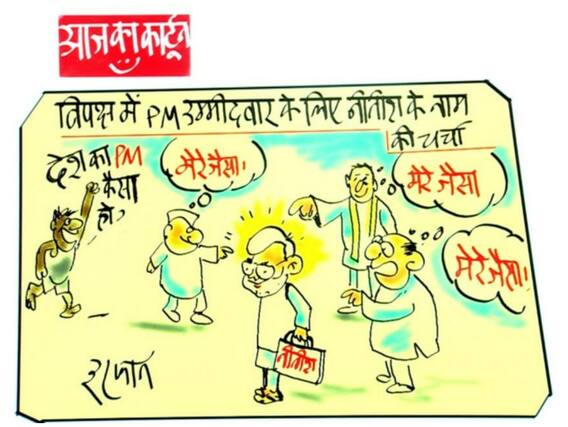 आज का कार्टून
विपक्ष में PM उम्मीदवार के लिए नीतीश के नाम
की चर्चा
देश का PM
कैसा
हो?
मेरे जैसा!
मेरे जैसा
मेरे जैसा!
नीतीश
इरफान